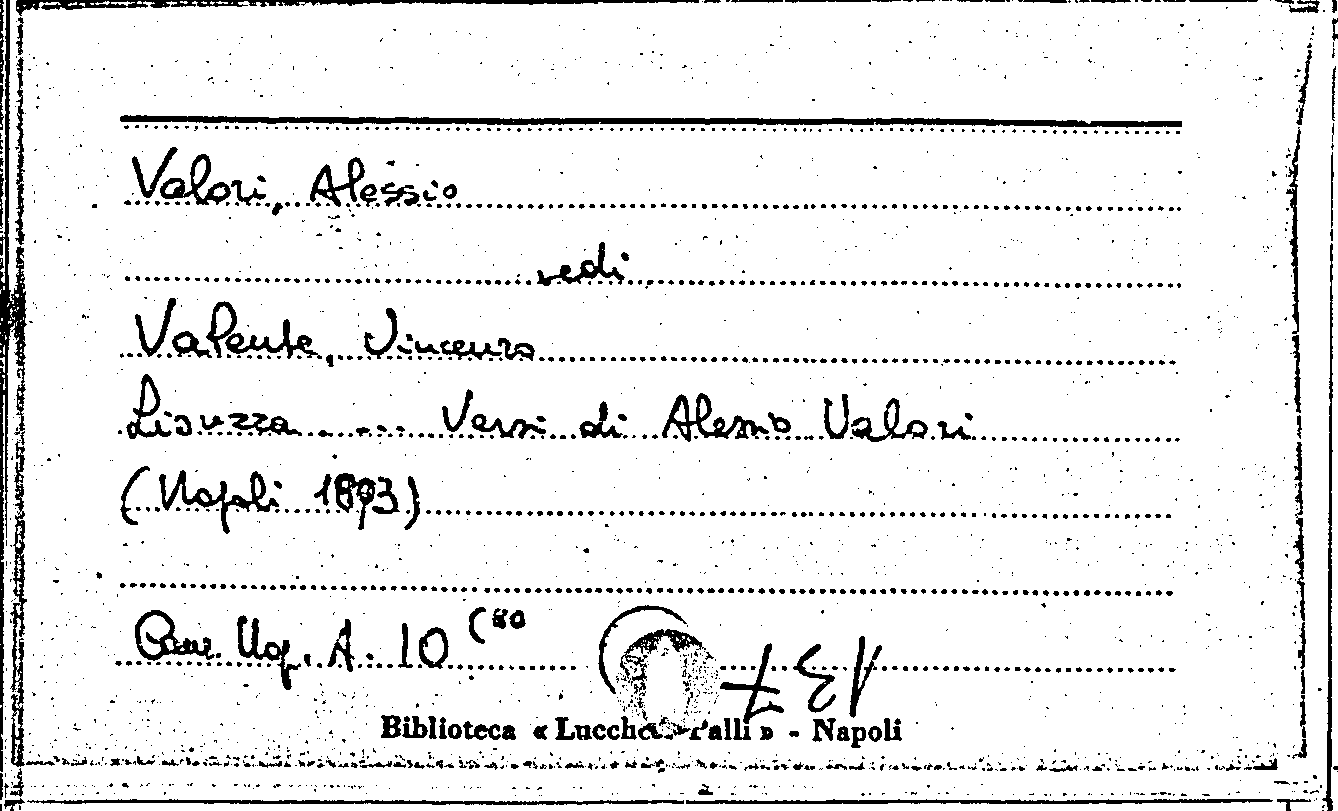 Valori, Alessio
vedi
Valente, Vincenzo
Lisuzza .... Versi di Alessio Valori
(Napoli 1893)
Canz. Nap. A. 10 (80
Biblioteca « Lucchesi-Palli » - Napoli